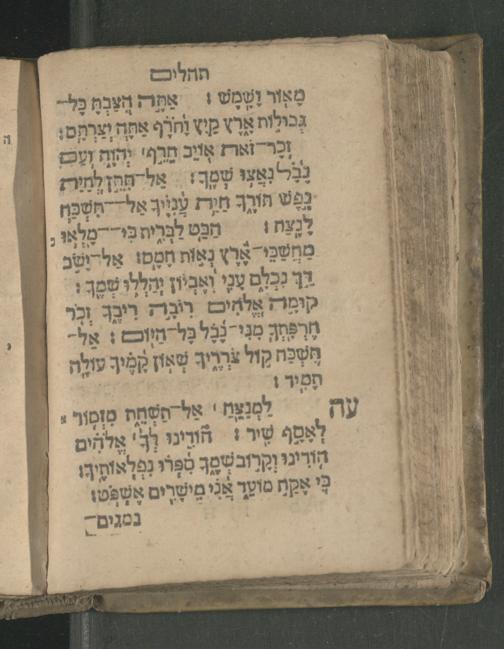 תהלים
מָאוֹר וָשָׁמֶשׁ׃ אַתָּה הִצַּבְתָּ כָּל־
גְּבוּלוֹת אָרֶץ קַיִץ וָחֹרֶף אַתָּה יְצַרְתָּם׃
זְכָר־זֹאת אוֹיֵב חֵרֵף׀ יְהוָה וְעַם
נָבָל נִאֲצוּ שְׁמֶךָ׃ אַל־תִּתֵּן לְחַיַּת
נֶפֶשׁ תּוֹרֶךָ חַיַּת עֲנִיֶּיךָ אַל־־תִּשְׁכַּח
לָנֶצַח׃ הַבֵּט לַבְּרִית כִּי־־מָלְאוּ
מַחֲשַׁכֵּי־אֶרֶץ נְאוֹת חָמָס׃ אַל־יָשֹׁב
דַּךְ נִכְלָם עָנִי וְאֶבְיוֹן יְהַלְלוּ שְׁמֶךָ׃
קוּמָה אֱלֹהִים רִיבָה רִיבֶךָ זְכֹר
חֶרְפָּתְךָ מִנִּי־נָבָל כָּל־הַיּוֹם׃ אַל־
תִּשְׁכַּח קוֹל צֹרְרֶיךָ שְׁאוֹן קָמֶיךָ עוֹלֶה
תָמִיד׃
עה לַמְנַצֵּחַ׀ אַל־תַּשְׁחֵת מִזְמוֹר א
לְאָסָף שִׁיר׃ הוֹדִינוּ לְּךָ׀ אֱלֹהִים
הוֹדִינוּ וְקָרוֹב שְׁמֶךָ סִפְּרוּ נִפְלְאוֹתֶיךָ׃
כִּי אֶקַּח מוֹעֵד אֲנִי מֵישָׁרִים אֶשְׁפֹּט׃
נמגים